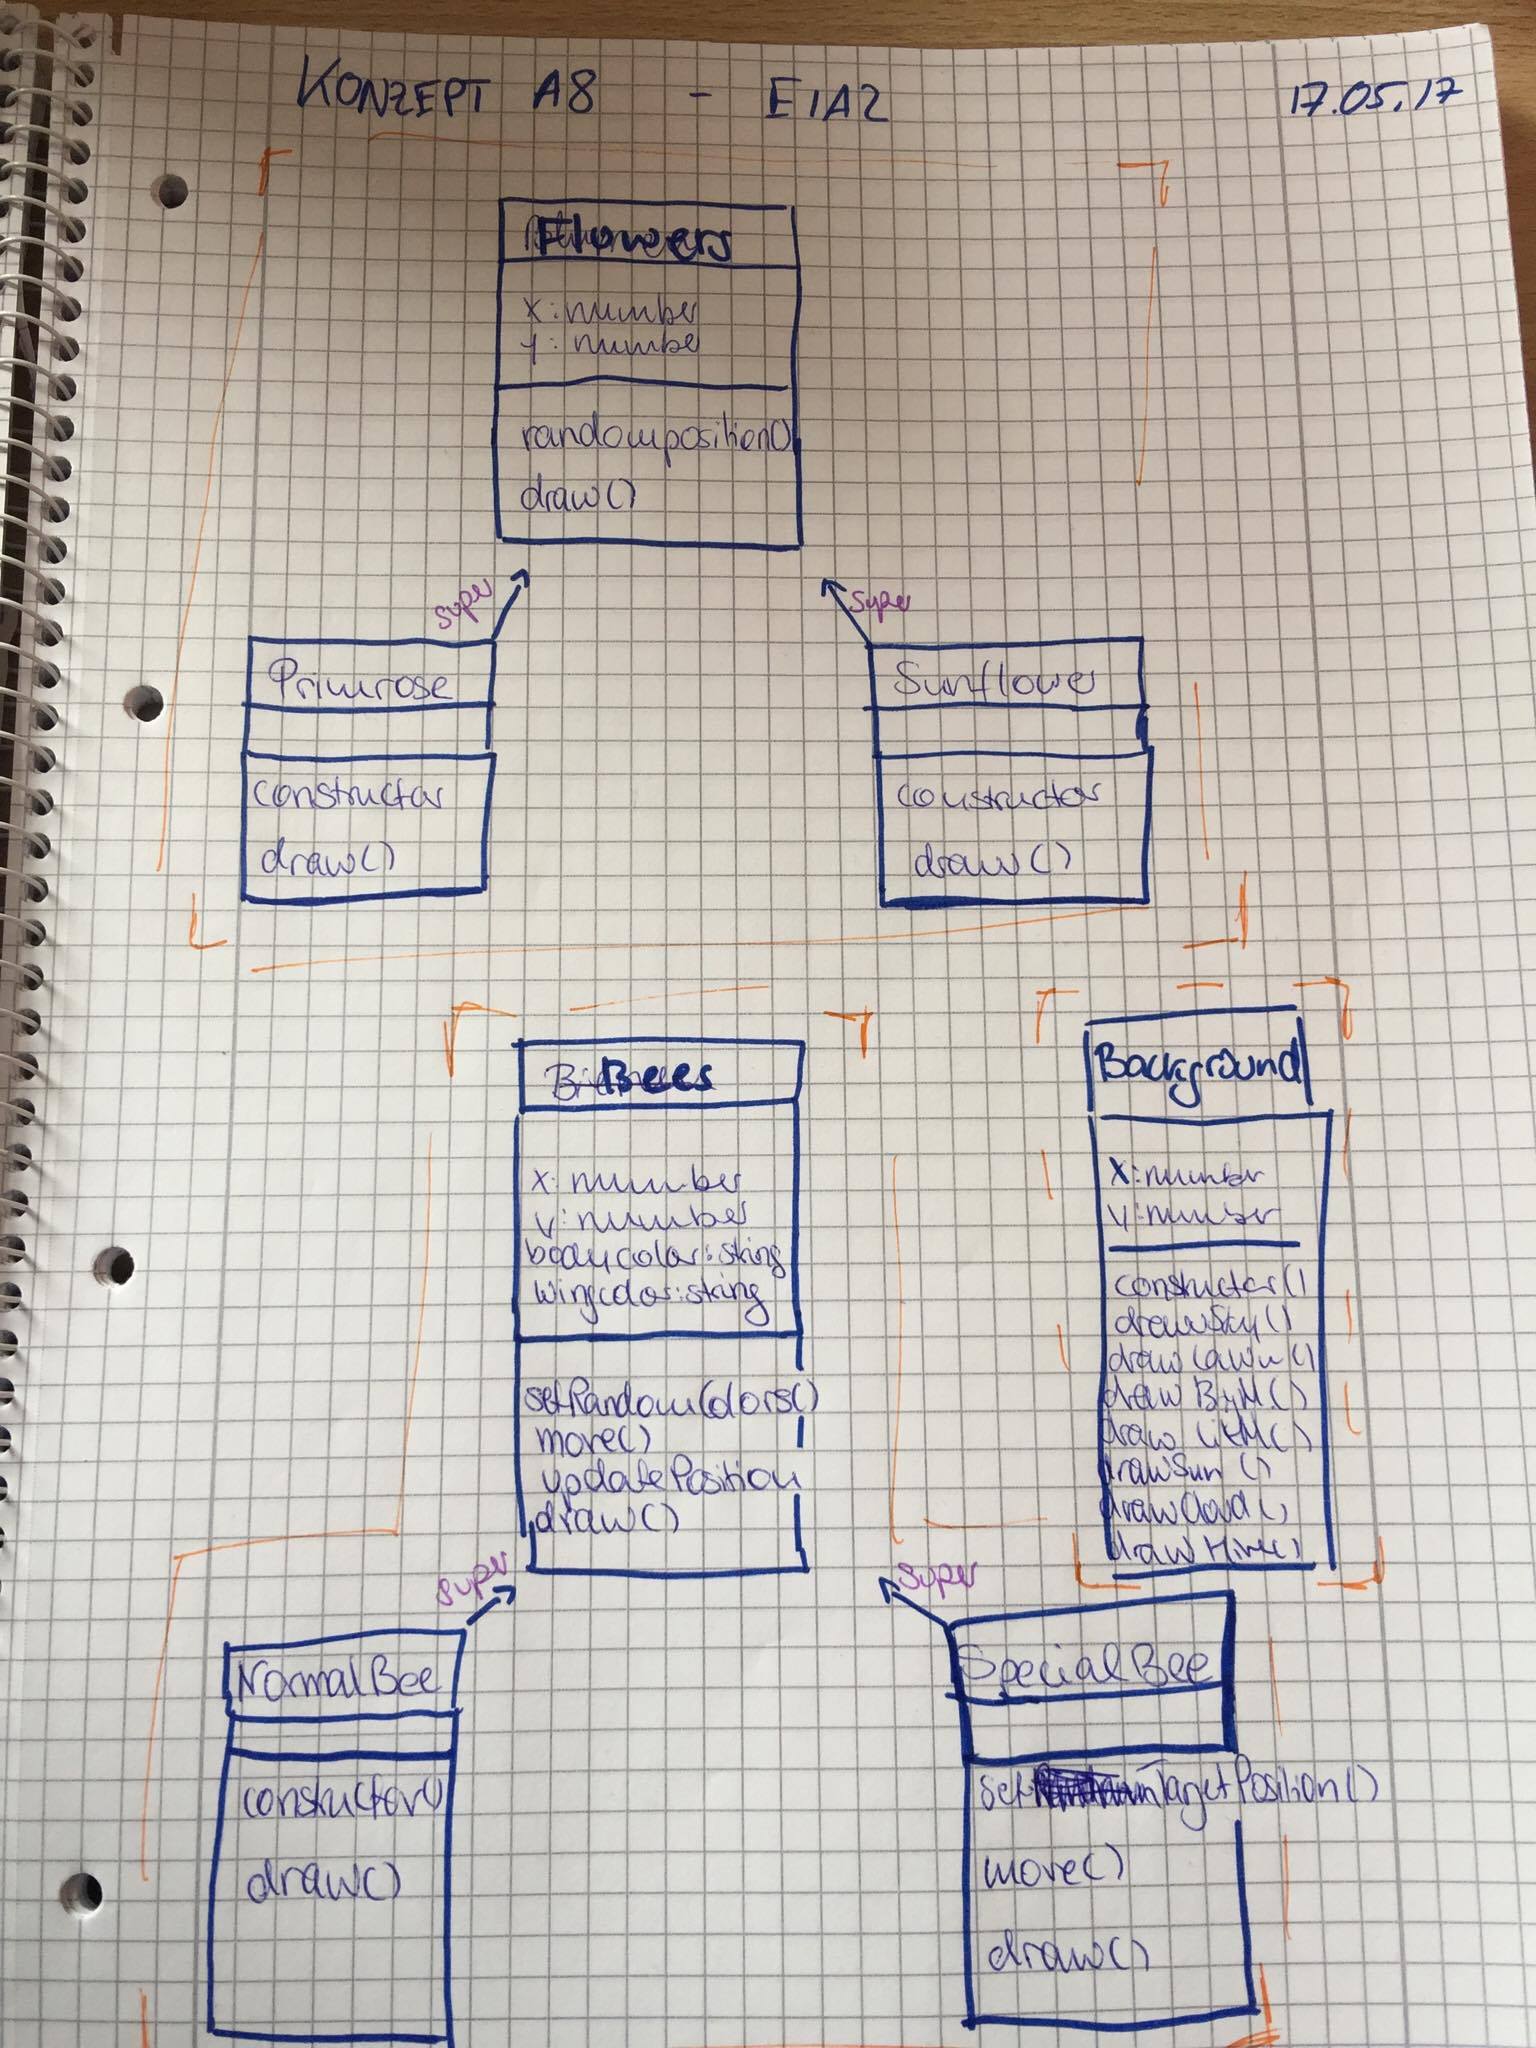 KONZEPT A8 - EIA2 17.05.17
Flowers
x: number
y: numbe
randomposition()
draw()
super
super
Primrose
constructor
draw()
Sunflower
constructor
draw()
Bees
x: number
y: number
bodycolor: string
wingcolor: string
setRandomColors()
move()
updatePosition
draw()
Background
x: number
y: number
constructor()
drawSky()
drawLawn()
draw BigM()
draw LitM()
drawSun ()
drawCloud()
draw Hive()
super
super
NormalBee
constructor()
draw()
SpecialBee
set TargetPosition()
move()
draw()